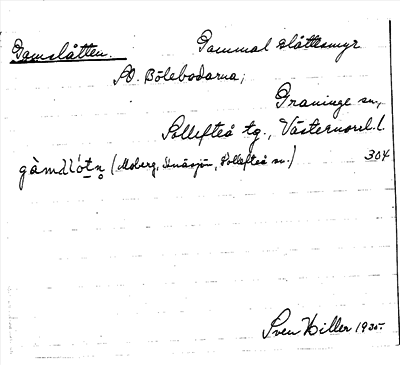 Gamslåtten. Gammal slåttesmyr
SO. Bölebodarna;
Graninge sn.,
Sollefteå tg., Västernorrl. l.
gàmslótn̥ (Moberg, Sollefteå sn.) 304
Sven Hiller 1935-